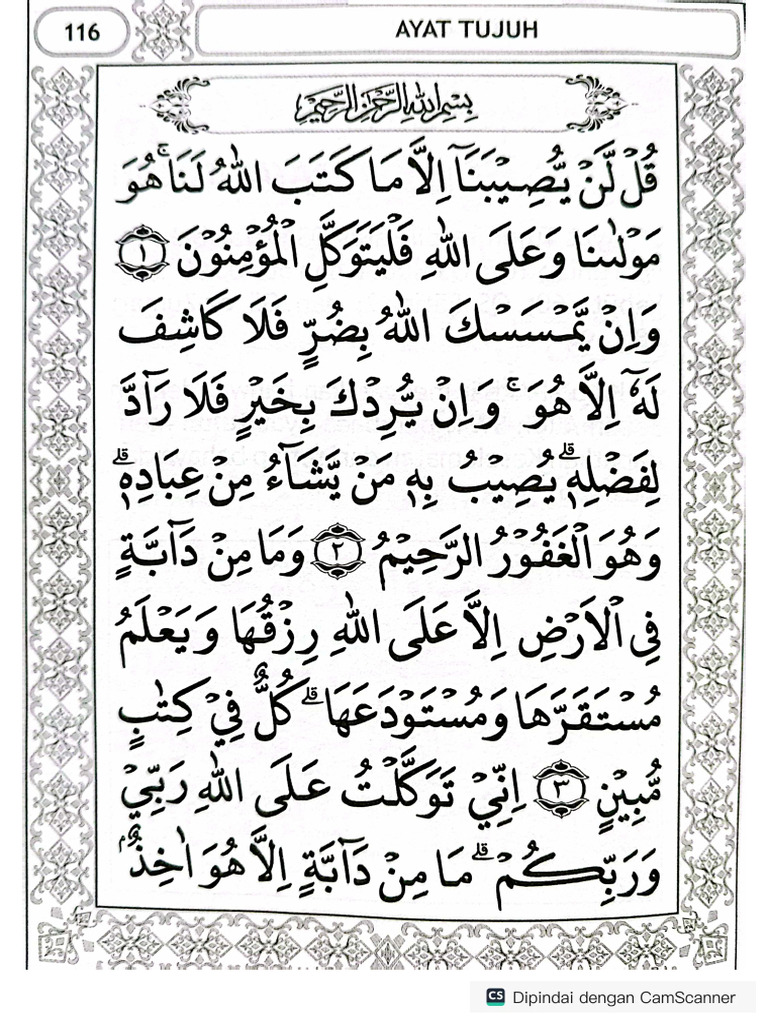 116
AYAT TUJUH
بِسْمِ اللّٰهِ الرَّحْمٰنِ الرَّحِيْمِ
قُلْ لَّنْ يُّصِيْبَنَآ اِلَّا مَا كَتَبَ اللّٰهُ لَنَاۚ هُوَ
مَوْلٰىنَا وَعَلَى اللّٰهِ فَلْيَتَوَكَّلِ الْمُؤْمِنُوْنَ ١
وَاِنْ يَّمْسَسْكَ اللّٰهُ بِضُرٍّ فَلَا كَاشِفَ
لَهٗٓ اِلَّا هُوَ ۚ وَاِنْ يُّرِدْكَ بِخَيْرٍ فَلَا رَاۤدَّ
لِفَضْلِهٖۗ يُصِيْبُ بِهٖ مَنْ يَّشَاۤءُ مِنْ عِبَادِهٖۗ
وَهُوَ الْغَفُوْرُ الرَّحِيْمُ ٢ وَمَا مِنْ دَاۤبَّةٍ
فِى الْاَرْضِ اِلَّا عَلَى اللّٰهِ رِزْقُهَا وَيَعْلَمُ
مُسْتَقَرَّهَا وَمُسْتَوْدَعَهَا ۗ كُلٌّ فِيْ كِتٰبٍ
مُّبِيْنٍ ٣ اِنِّيْ تَوَكَّلْتُ عَلَى اللّٰهِ رَبِّيْ
وَرَبِّكُمْ ۗ مَا مِنْ دَاۤبَّةٍ اِلَّا هُوَ اٰخِذٌۢ
CS Dipindai dengan CamScanner